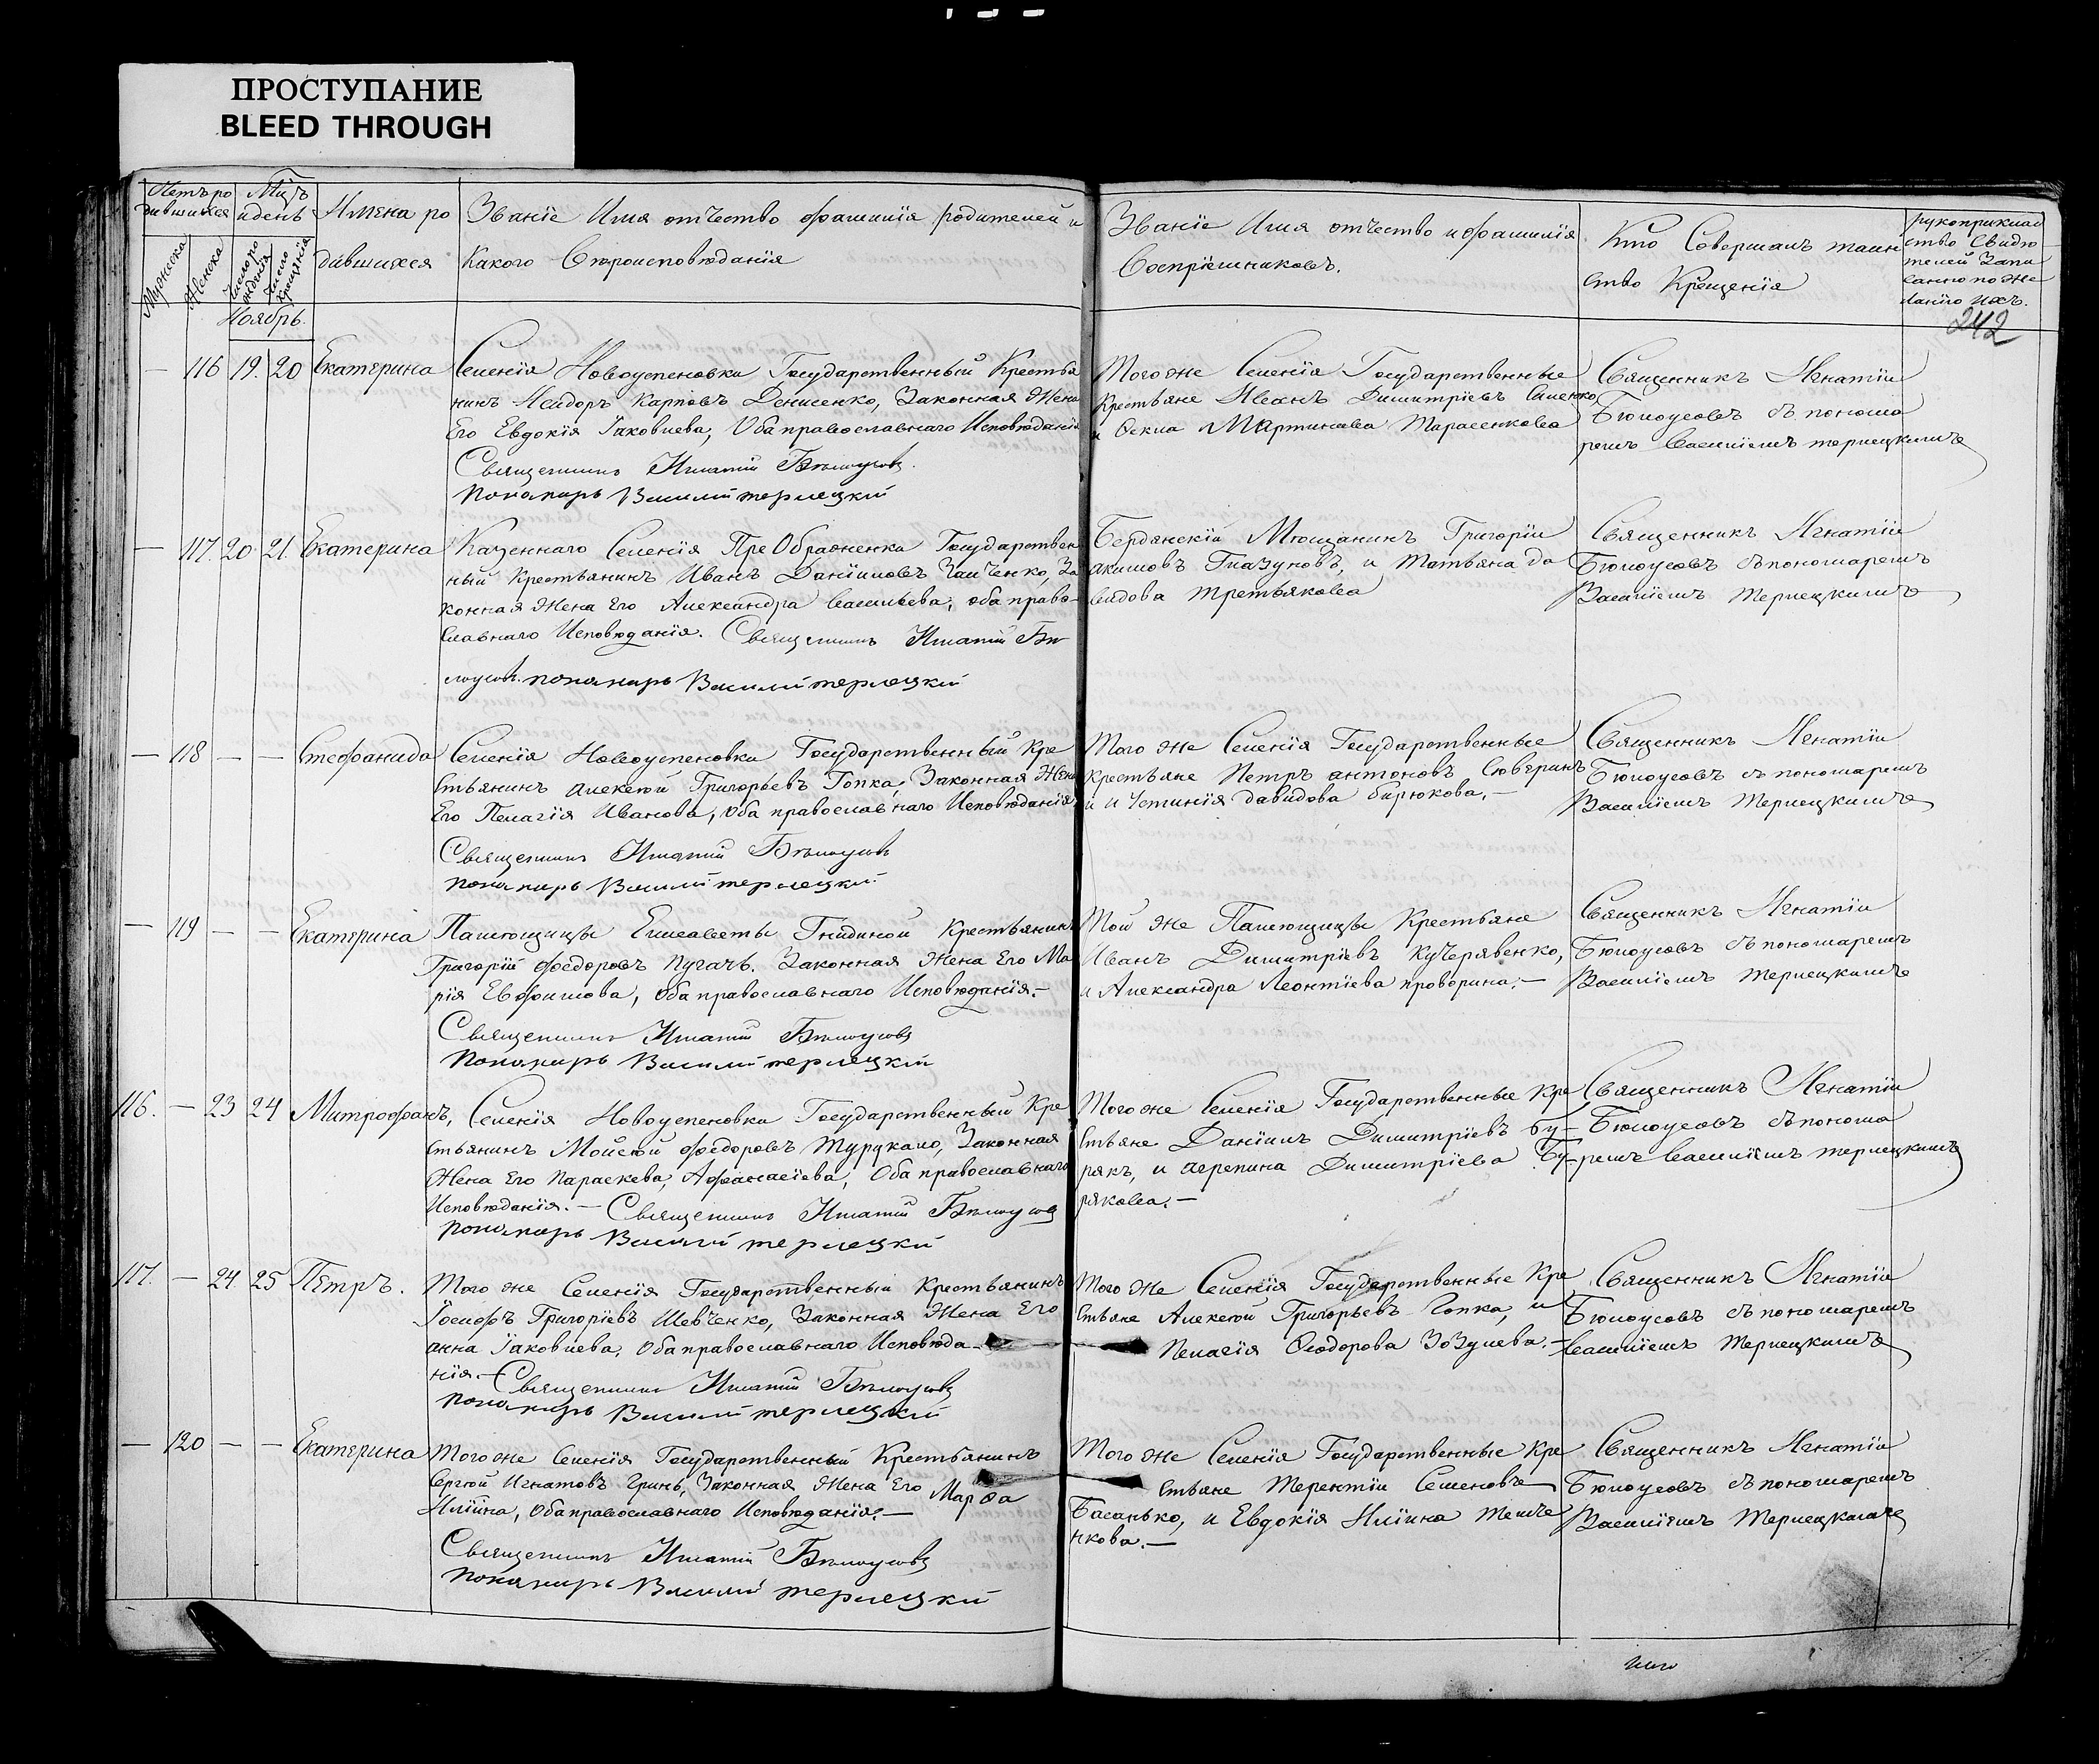 ПРОСТУПАНИЕ
BLEED THROUGH
Счетъ ро
дившихся
Мцъ
и день
Имена ро
Званіе Имя отчество фамилія родителей и
Званіе Имя отчество и фамилія
Кто Совершалъ таин
рукоприклад
ство Свидѣ
телей Запи
санію по Же
ланію ихъ.
Мужеска
Женска
Число ро
жденія
Число
крещенія
дившихся
Какого Вѣроисповѣданія
Воспріемниковъ.
ство Крещенія
Ноябрь.
242
— 116 19. 20 Екатерина
Селенія Новоуспеновки Государственный Крестья
нинъ Исидоръ Карповъ Денисенко, Законная Жена
Его Евдокія Іаковлева, Оба православнаго Исповѣданія
Священникъ Игнатій Бѣлоусовъ.
Пономарь Василій терлецкій
Того же Селенія Государственные
Крестьяне Иванъ Димитріевъ Синенко
и Мартинова Тарасенкова
Священникъ Игнатіи
Бѣлоусовъ съ понома
ремъ Василіемъ терлецкимъ
— 117. 20 21. Екатерина
Казеннаго Селенія ПреОбраженки Государствен
ный Крестьянинъ Иванъ Даніиловъ Заиченко, За
конная Жена Его Александра Васильева, оба право-
славнаго Исповѣданія. Священникъ Игнатій Бѣ
лоусовъ. пономарь Василій терлецкій
Бердянскій Мѣщанинъ Григоріи
акимовъ Глазуновъ, и Татьяна да
видова третьякова
Священникъ Игнатіи
Бѣлоусовъ съ пономаремъ
Василіемъ Терлецкимъ
— 118 — — Стефанида
Селенія Новоуспеновки Государственный Кре
стьянинъ алексѣй Григорьевъ Гопка, Законная Жена
Его Пелагія Иванова, Оба православнаго Исповѣданія
Священникъ Игнатій Бѣлоусовъ
пономарь Василій терлецкій
Того же Селенія Государственные
крестьяне Петръ антоновъ Сюверинъ
и Устинія давидова бирюкова, —
Священникъ Игнатіи
Бѣлоусовъ съ пономаремъ
Василіемъ Терлецкимъ
— 119 — — Екатерина
Памѣщицы Елисаветы Гнидиной Крестьянинъ
Григорій федоровъ Пугачь. Законная Жена Его Ма
рія Евфимова, Оба православнаго Исповѣданія. —
Священникъ Игнатій Бѣлоусовъ
Пономарь Василій терлецкій
Той Же Памѣщицы Крестьяне
Иванъ Димитріевъ Кучерявенко,
и Александра Леонтіева проворина. —
Священникъ Игнатіи
Бѣлоусовъ съ пономаремъ
Василіемъ Терлецкимъ
116. — 23 24 Митрофанъ,
Селенія Новоуспеновки Государственный Кре
стьянинъ Мойсѣй федоровъ Турукало, Законная
Жена Его Параскева, Афанасіева, Оба православнаго
Исповѣданія. — Священникъ Игнатій Бѣлоусовъ
пономарь Василій терлецкій
Того же Селенія Государственные Кре
стьяне Даніилъ Димитріевъ бу-
рякъ, и агрепина Димитріева Бу-
рякова. —
Священникъ Игнатіи
Бѣлоусовъ съ понома
ремъ Василіемъ терлецкимъ
117. — 24. 25 Петръ.
Того же Селенія Государственный Крестьянинъ
Іосифъ Григоріевъ Шевченко, Законная Жена Его
анна Іаковлева, Оба православнаго Исповѣда
нія. — Священникъ Игнатій Бѣлоусовъ
пономарь Василій терлецкій
Того Же Селенія Государственные Кре
стьяне Алексѣй Григорьевъ Гопка, и
Пелагія Ѳеодорова Зозулева. —
Священникъ Игнатіи
Бѣлоусовъ съ пономаремъ
Василіемъ Терлецкимъ
— 120 — — Екатерина
Того же Селенія Государственный Крестьянинъ
Сергѣй Игнатовъ Гринь, Законная Жена Его Марѳа
Иліина, Оба православнаго Исповѣданія. —
Священникъ Игнатій Бѣлоусовъ
пономарь Василій терлецкій
Того же Селенія Государственные Кре
стьяне Терентіи Семеновъ
Басанько, и Евдокія Иліина Темче
нкова. —
Священникъ Игнатіи
Бѣлоусовъ съ пономаремъ
Василіемъ Терлецкимъ